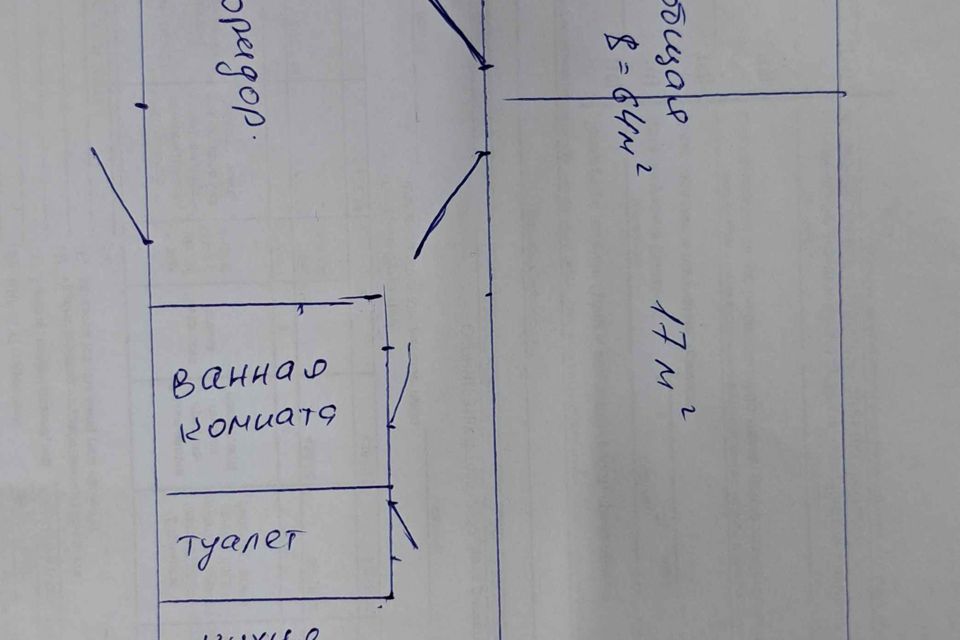 оридор.
общая
S = 64м²
17 м²
ванная
комната
туалет